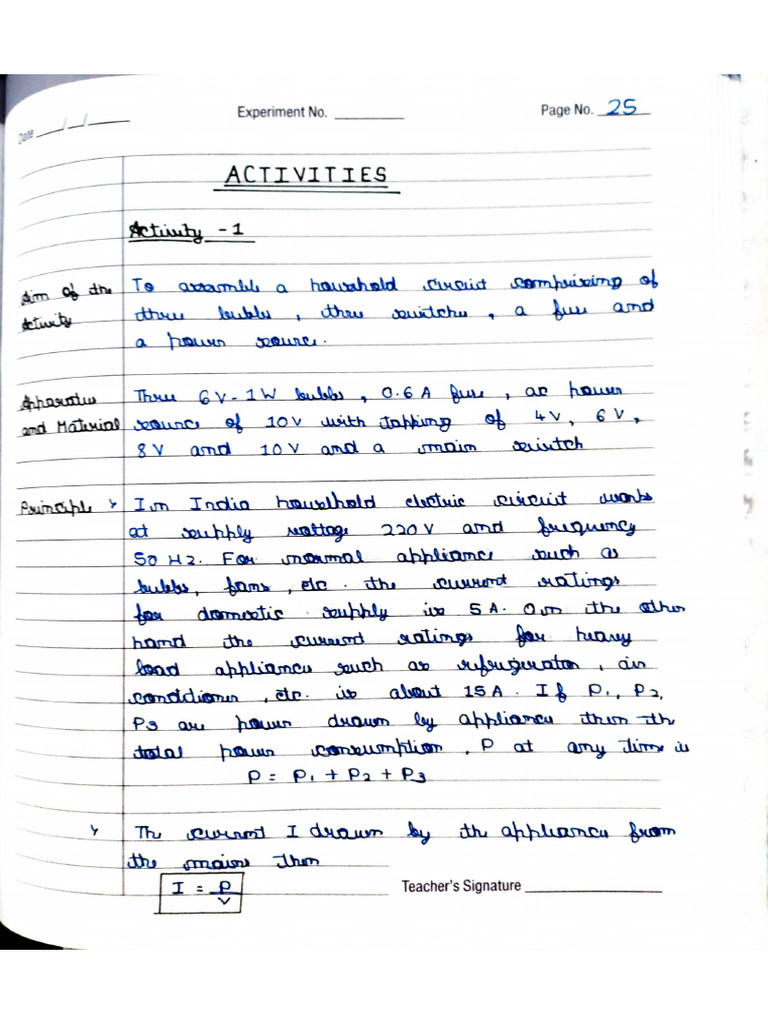 Date __/__/____ Experiment No. ________ Page No. 25
ACTIVITIES
Activity - 1
Aim of the Activity
To assemble a household circuit comprising of
three bulbs, three switches, a fuse and
a power source.
Apparatus and Material
Three 6V-1W bulbs, 0.6A fuse, ac power
source of 10V with tapping of 4V, 6V,
8V and 10V and a main switch
Principle > In India household electric circuit works
at supply voltage 220V and frequency
50 Hz. For normal appliance such as
bulbs, fans, etc. the current ratings
for domestic supply is 5A. On the other
hand the current ratings for heavy
load appliances such as refrigerator, air
conditioner, etc. is about 15A. If P1, P2,
P3 are power drawn by appliances then the
total power consumption, P at any time is
P = P1 + P2 + P3
> The current I drawn by the appliances from
the mains then
I = P/V
Teacher's Signature ________